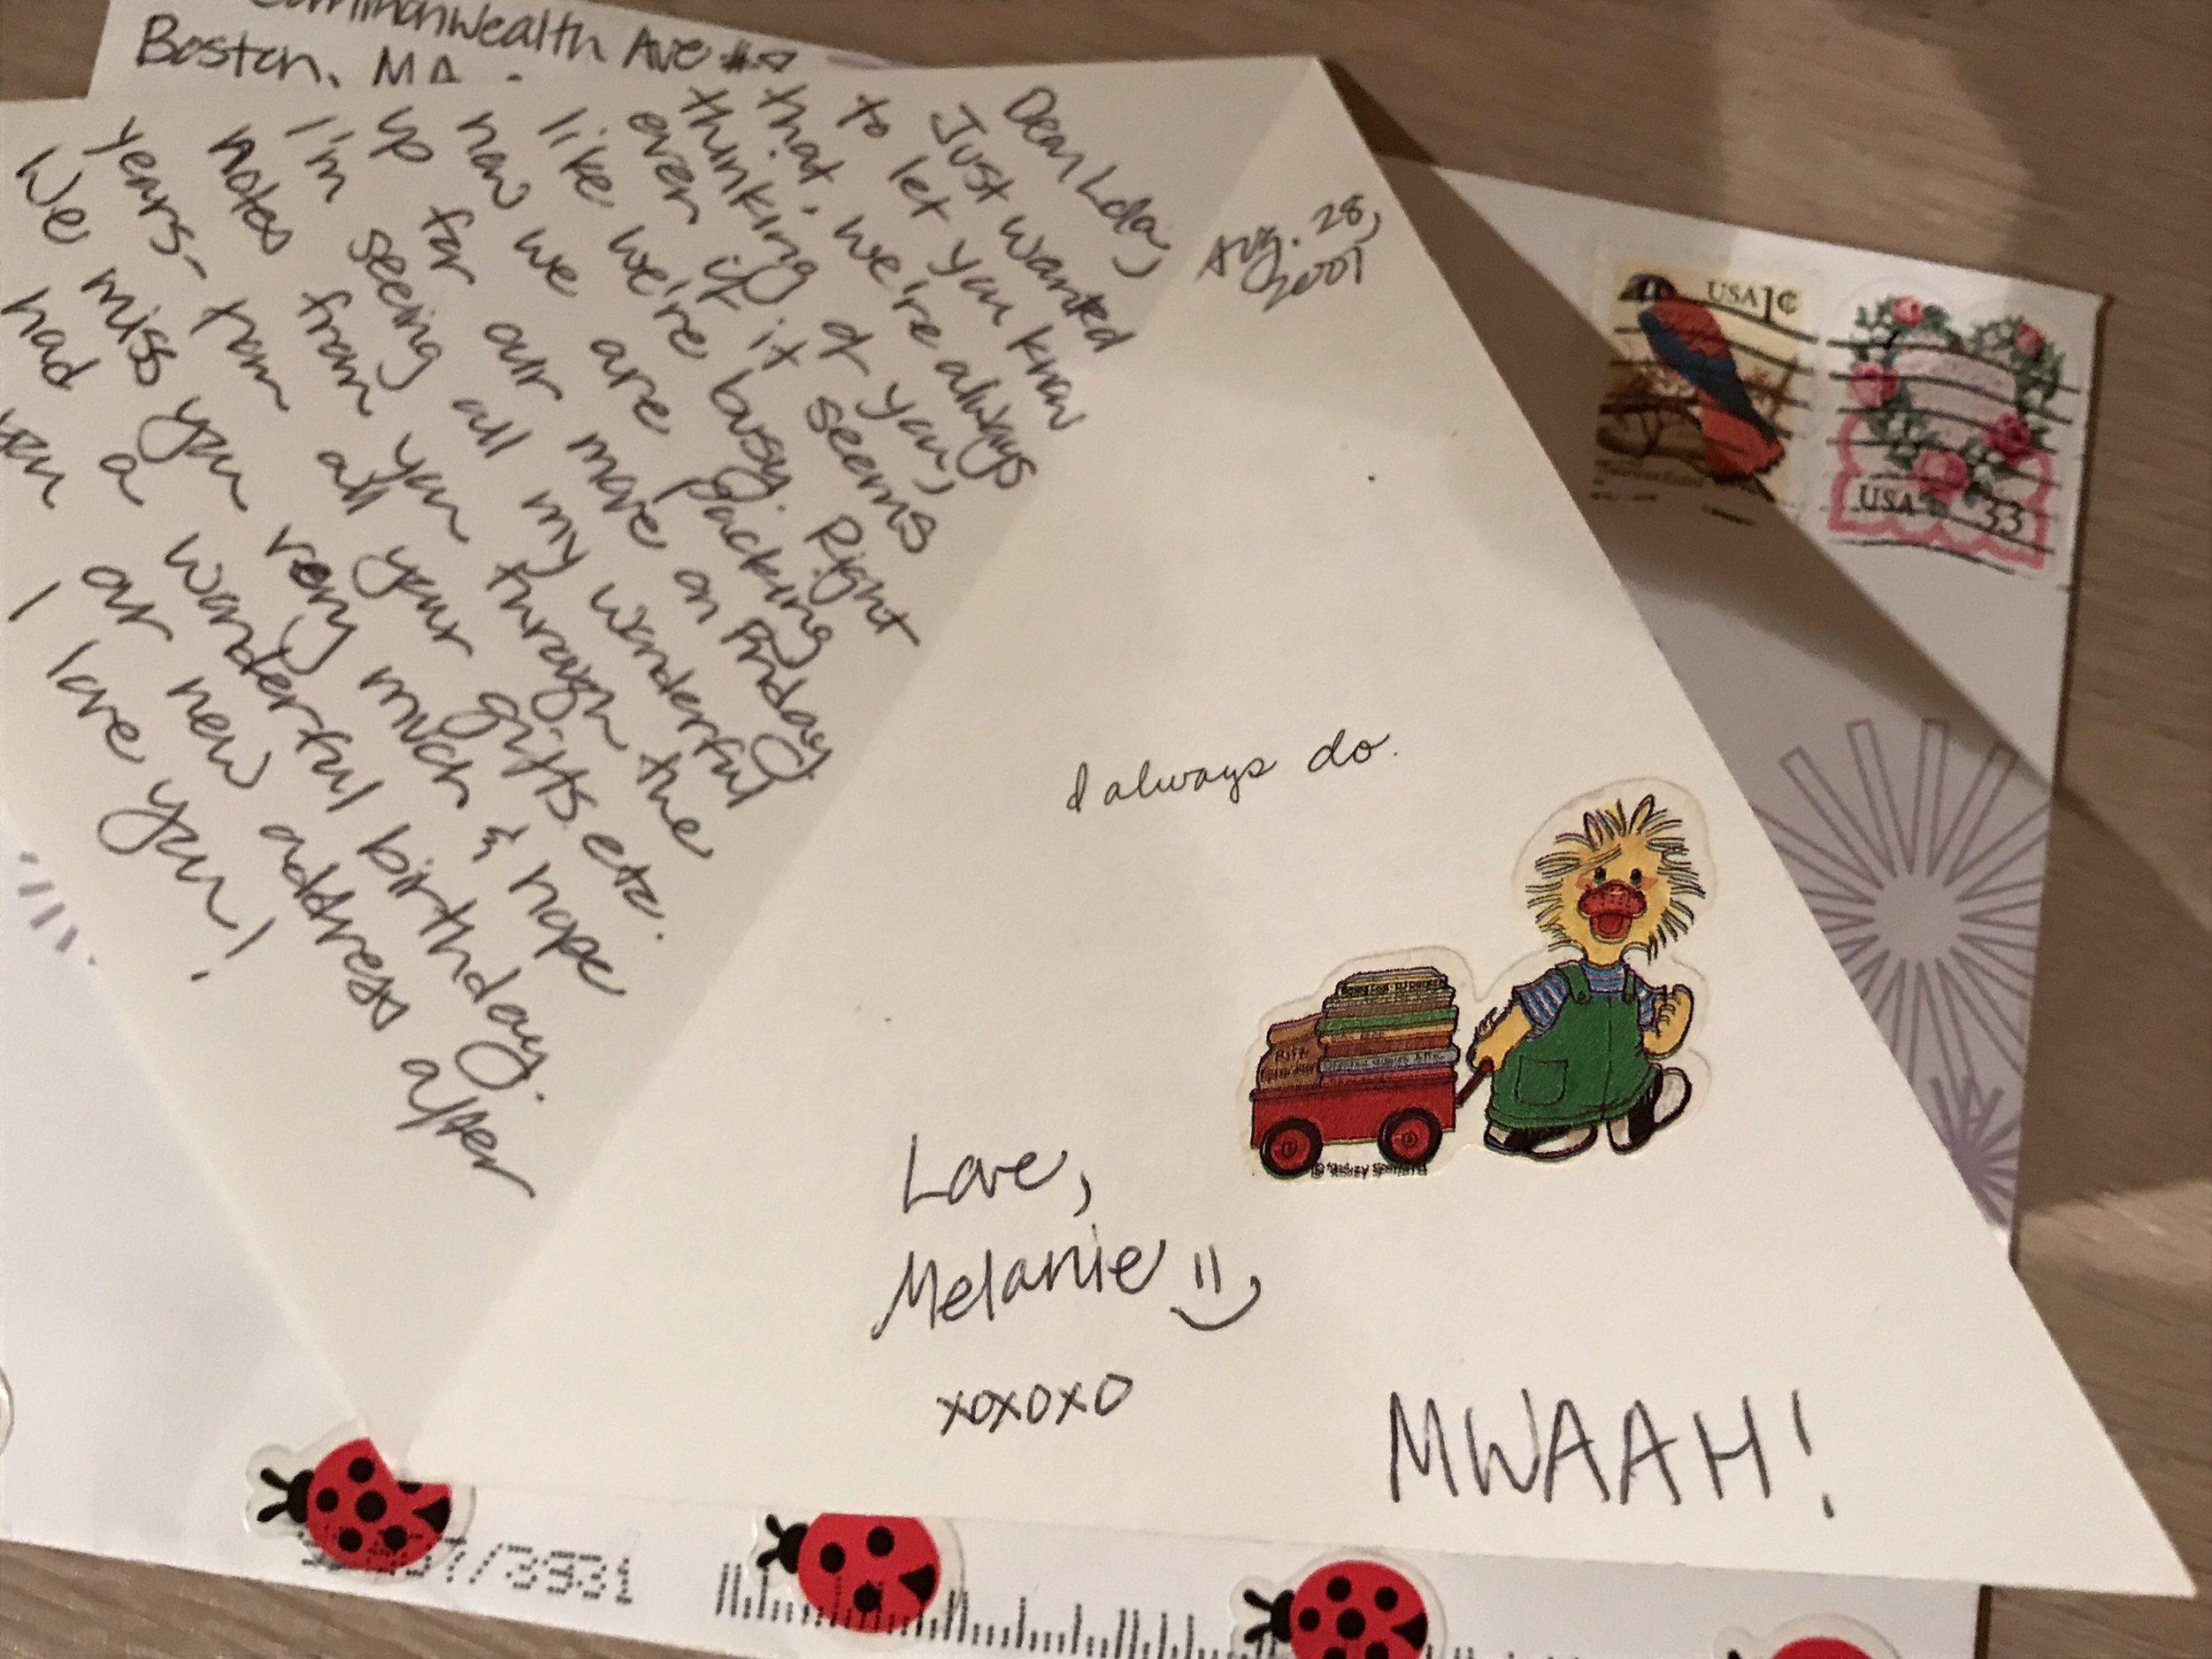 Commonwealth Ave #
Boston, MA
Aug. 28,
2001
Dear Lola,
Just wanted
to let you know
that, we're always
thinking of you,
even if it seems
like we're busy. Right
now we are packing
up for our move on Friday
I'm seeing all my wonderful
notes from you through the
years- from all your gifts etc.
We miss you very much & hope
had a wonderful birthday.
our new address after
I love you!
I always do.
Love,
Melanie
xoxoxo
MWAAH!
USA 1¢
USA 33
Ritz
/3931